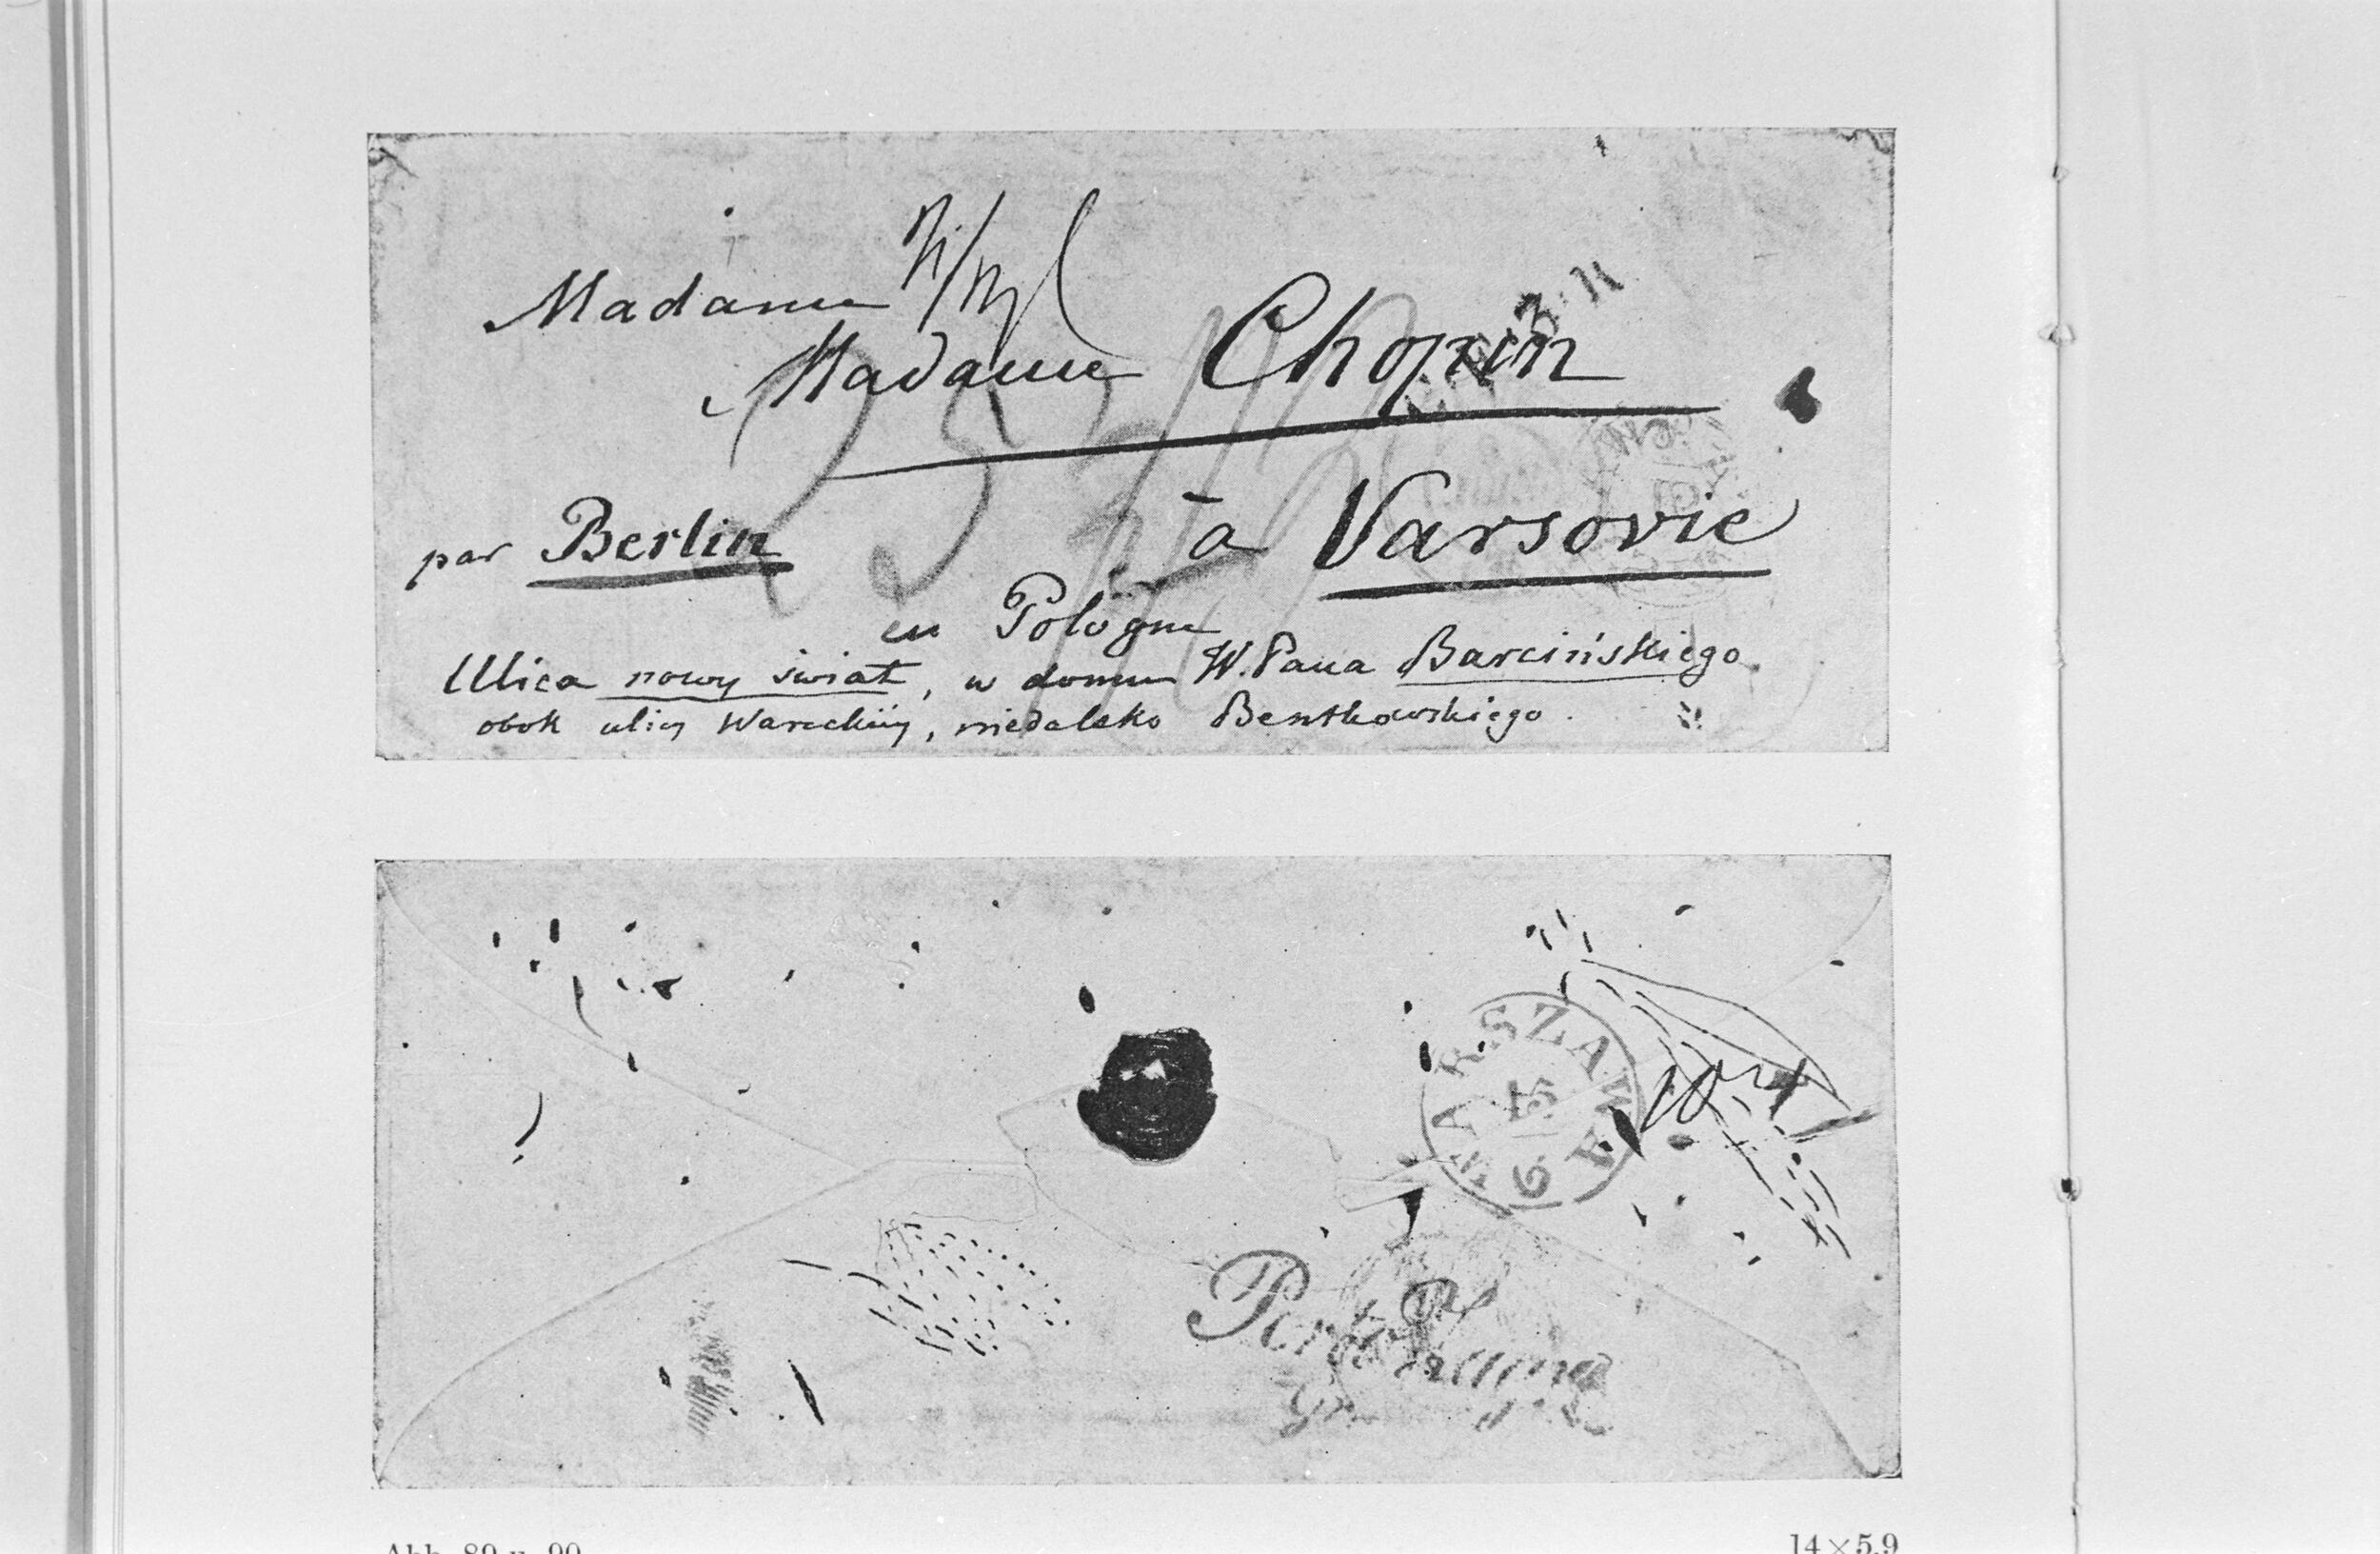 Madame
Madame Chopin
par Berlin
à Varsovie
en Pologne
Ulica nowy świat, w domu W. Pana Barcińskiego
obok ulicy Wareckiéj, niedaleko Bentkowskiego.
WARSZAWA
15
6
Abb. 89 u. 90
14×5,9